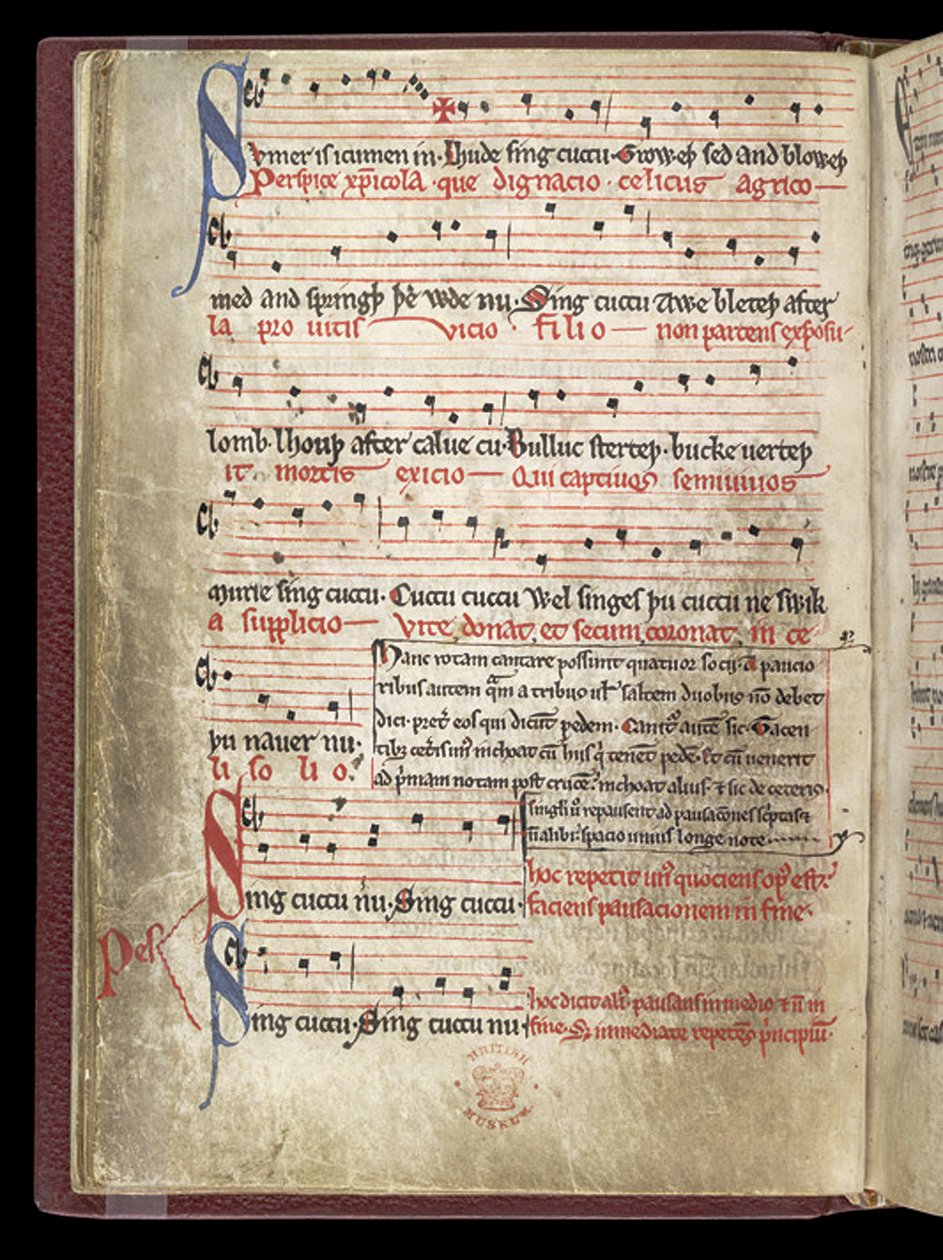 Svmer is icumen in. Lhude sing cuccu. Groweþ sed and bloweþ
Perspice xp̅icola. que dignacio. celicus agrico
med and springþ þe wde nu. Sing cuccu Awe bleteþ after
la pro uitis vicio. filio non parcens exposu
lomb. lhouþ after calue cu. Bulluc sterteþ. bucke uerteþ
it mortis exicio Qui captiuos semiuiuos
murie sing cuccu. Cuccu cuccu Wel singes þu cuccu ne swik
a supplicio Vite donat et secum coronat in ce
þu nauer nu.
li so li o.
Hanc rotam cantare possunt quatuor socij. A paucio
ribus autem qͣm a tribus uł saltem duobus n̄o debet
dici. pret̉ eos qui dicūt pedem. Canit᷑ autē sic. Tacen
tibȝ cet̉is un᷒ inchoat cū hiis q̇ tenēt pedē. Et cū uenerit
ad p̉mam notam post crucē. inchoat alius. ⁊ sic de ceteris.
singłi ū repausent ad pausac̄ones sc̉ptas ⁊
n̄ alibi. spacio unius longe note
Sing cuccu nu. Sing cuccu.
hoc repetit un᷒ quociens op᷒ est.
faciens pausacionem in fine.
Pes
Sing cuccu. Sing cuccu nu.
hoc dicit ali᷒. pausans in medio ⁊ n̄ in
fine. Sȝ inmediate repetēs p̉ncipiū.
BRITISH
MUSEUM